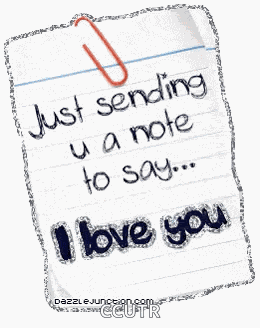 Just sending
u a note
to say...
I love you
DazzleJunction.com
CCUTR